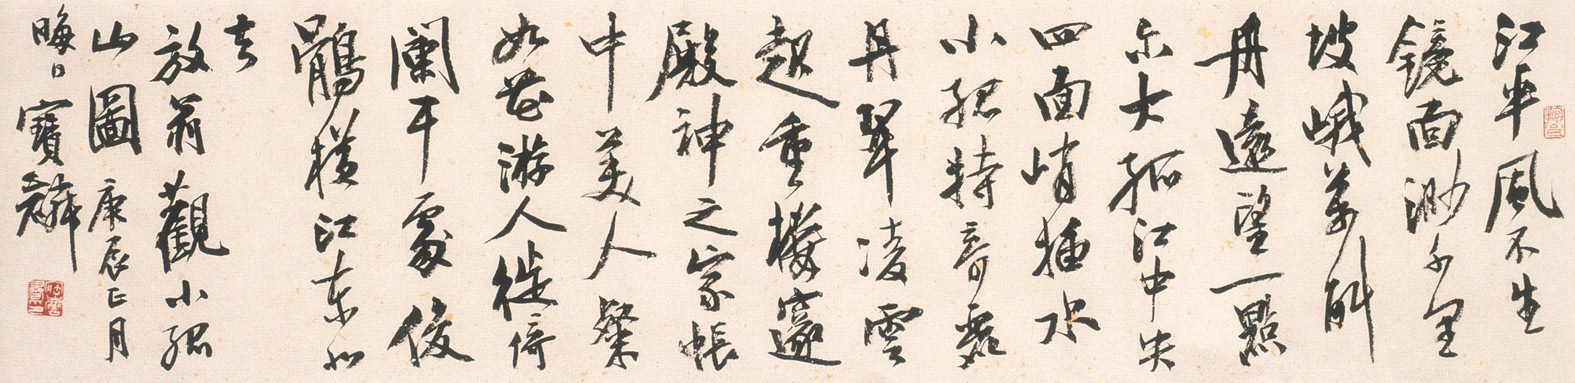 江平风不生
镜面渺千里
坡峨万斛
舟远望一點
尔大孤江中央
四面峭插水
小孤特奇露
丹翠凌雲
起重樓邃
殿神之家帳
中美人粲
如花游人徙倚
闌干處俊
鶻横江東北
去
放翁觀小孤
山圖 庚辰正月
晦日 寶麟